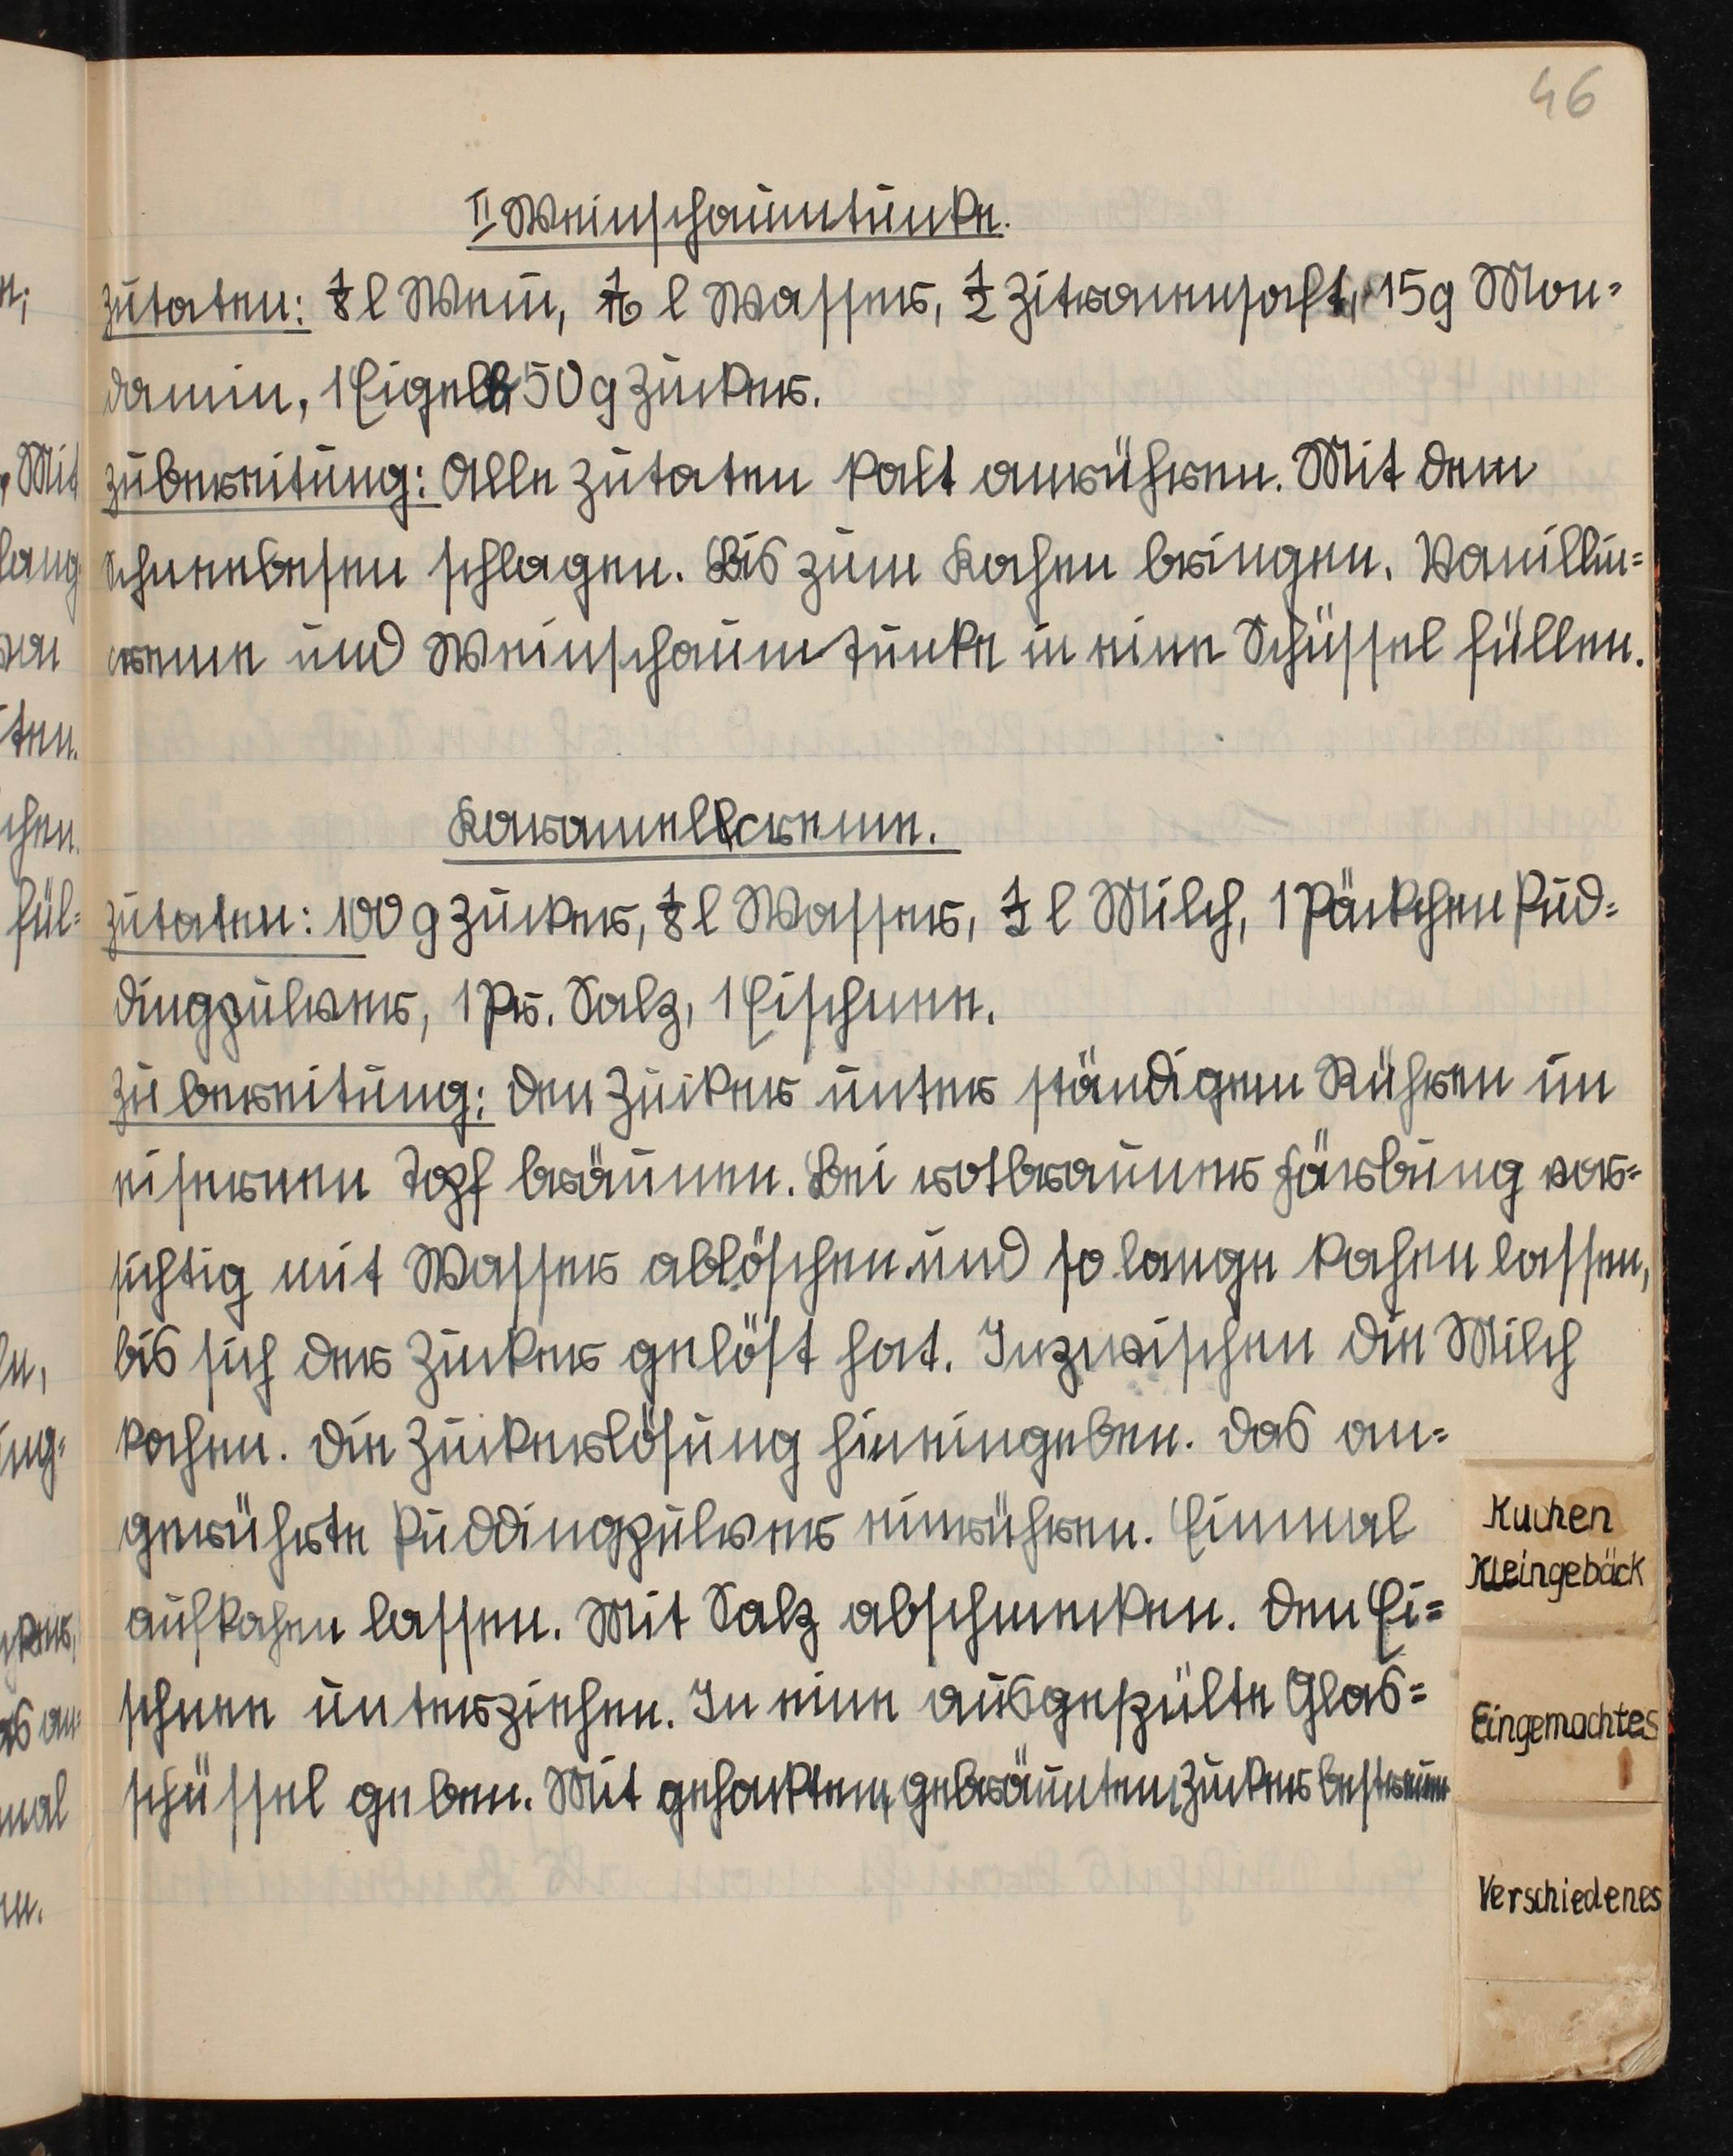 46
II Weinschaumtunke.
Zutaten: 1/8 l Wein, 1/16 l Wasser, 1/2 Zitronensaft, 15g Mon=
damin, 1 Eigelb, 50 g Zucker.
Zubereitung: Alle Zutaten kalt anrühren. Mit dem
Schneebesen schlagen. Bis zum Kochen bringen. Vanillin=
creme und Weinschaumtunke in eine Schüssel füllen.
Karamellcreme.
Zutaten: 100 g Zucker, 1/8 l Wasser, 1/2 l Milch, 1 Päckchen Pud=
dingpulver, 1 Pr. Salz, 1 Eischnee.
Zubereitung: Den Zucker unter ständigem Rühren im
eisernen Topf bräunen. Bei rotbrauner Färbung vor=
sichtig mit Wasser ablöschen und so lange kochen lassen,
bis sich der Zucker gelöst hat. Inzwischen die Milch
kochen. Die Zuckerlösung hineingeben. Das an=
gerührte Puddingpulver einrühren. Einmal
aufkochen lassen. Mit Salz abschmecken. Den Ei=
schnee unterziehen. In eine ausgespülte Glas=
schüssel geben. Mit gehacktem, gebräunten Zucker bestreuen
Kuchen
Kleingebäck
Eingemachtes
Verschiedenes